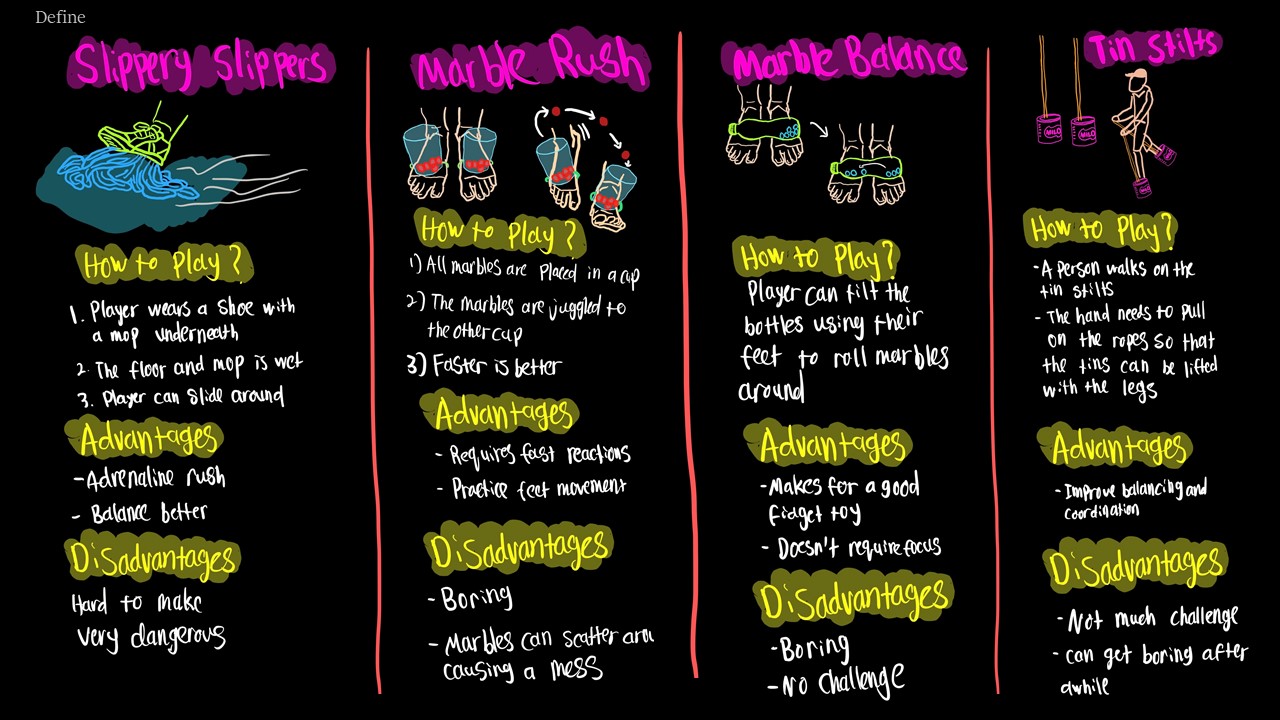 Define
Slippery Slippers
How to Play?
1. Player wears a shoe with
a mop underneath
2. The floor and mop is wet
3. Player can slide around
Advantages
- Adrenaline rush
- Balance better
Disadvantages
Hard to make
very dangerous
Marble Rush
How to Play?
1) All marbles are placed in a cup
2) The marbles are juggled to
the other cup
3) Faster is better
Advantages
- Requires fast reactions
- Practice feet movement
Disadvantages
- Boring
- Marbles can scatter arou
causing a mess
Marble Balance
How to Play?
Player can tilt the
bottles using their
feet to roll marbles
around
Advantages
- Makes for a good
fidget toy
- Doesn't require focus
Disadvantages
- Boring
- No challenge
Tin Stilts
MILO
MILO
MILO
MILO
How to Play?
- A person walks on the
tin stilts
- The hand needs to pull
on the ropes so that
the tins can be lifted
with the legs
Advantages
- Improve balancing and
coordination
Disadvantages
- Not much challenge
- can get boring after
awhile